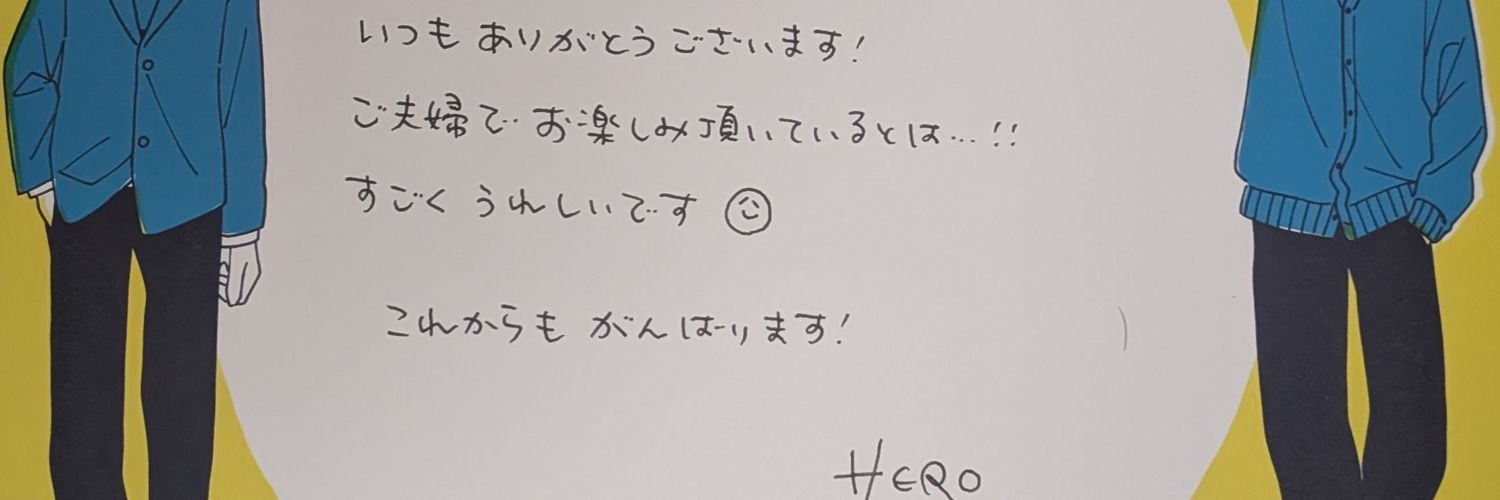 いつも ありがとう ございます!
ご夫婦で お楽しみ頂いているとは…!!
すごく うれしいです
これからも がんばります!
HERO